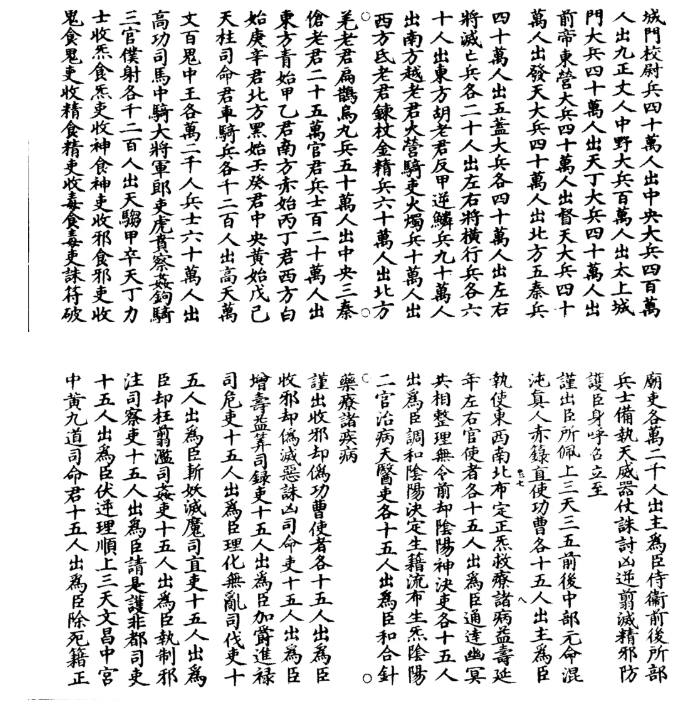 城門校尉兵四十萬人出中央大兵四百萬
人出九正丈人中野大兵百萬人出太上城
門大兵四十萬人出天丁大兵四十萬人出
前帝東營大兵四十萬人出督天大兵四十
萬人出發天大兵四十萬人出北方五秦兵
四十萬人出五蓋大兵各四十萬人出左右
將滅亡兵各二十人出左右將橫行兵各六
十人出東方胡老君反甲逆鱗兵九十萬人
出南方越老君火營騎吏火燭兵十萬人出
西方氐老君鍊杖金精兵六十萬人出北方
羌老君扁鵲烏丸兵五十萬人出中央三秦
傖老君二十五萬官君兵士百二十萬人出
東方青始甲乙君南方赤始丙丁君西方白
始庚辛君北方黑始壬癸君中央黃始戊己
天柱司命君車騎兵各千二百人出高天萬
丈百鬼中王各萬二千人兵士六十萬人出
高功司馬中騎大將軍郎吏虎賁察姦鉤騎
三官僕射各千二百人出天騶甲卒天丁力
士收炁食炁吏收神食神吏收邪食邪吏收
鬼食鬼吏收精食精吏收毒食毒吏誅符破
廟吏各萬二千人出主為臣侍衞前後所部
兵士備執天威器仗誅討凶逆翦滅精邪防
護臣身呼召立至
謹出臣所佩上三天三五前後中部元命混
沌真人赤籙直使功曹各十五人出主為臣
執使東西南北布定正炁救療諸病益壽延
年左右官使者各十五人出為臣通達幽冥
共相整理無令前却陰陽神決吏各十五人
出為臣調和陰陽決定生籍流布生炁陰陽
二官治病天醫吏各十五人出為臣和合針
藥療諸疾病
謹出收邪却偽功曹使者各十五人出為臣
收邪却偽滅惡誅凶司命吏十五人出為臣
增壽益筭司錄吏十五人出為臣加爵進祿
司危吏十五人出為臣理化無亂司伐吏十
五人出為臣斬妖滅魔司直吏十五人出為
臣却枉翦濫司姦吏十五人出為臣執制邪
注司察吏十五人出為臣請是護非都司吏
十五人出為臣伏逆理順上三天文昌中宮
中黃九道司命君十五人出為臣除死籍正